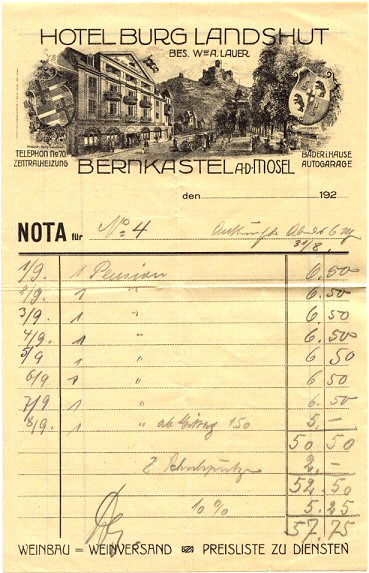 HOTEL BURG LANDSHUT
BES. WWE A. LAUER
TELEPHON No 70.
ZENTRALHEIZUNG
BÄDER i. HAUSE
AUTOGARAGE
BERNKASTEL A.D. MOSEL
den 192
NOTA für No 4 Ankunft Abends 6
31/8.
1/9. 1 Pension 6.50
2/9. 1 " 6.50
3/9. 1 " 6.50
4/9. 1 " 6.50
5/9 1 " 6 50
6/9 1 " 6 50
7/9 1 " 6.50
8/9. 1 " ab 1.50 5.–
50 50
2 2.–
52.50
10% 5.25
57.75
WEINBAU = WEINVERSAND PREISLISTE ZU DIENSTEN